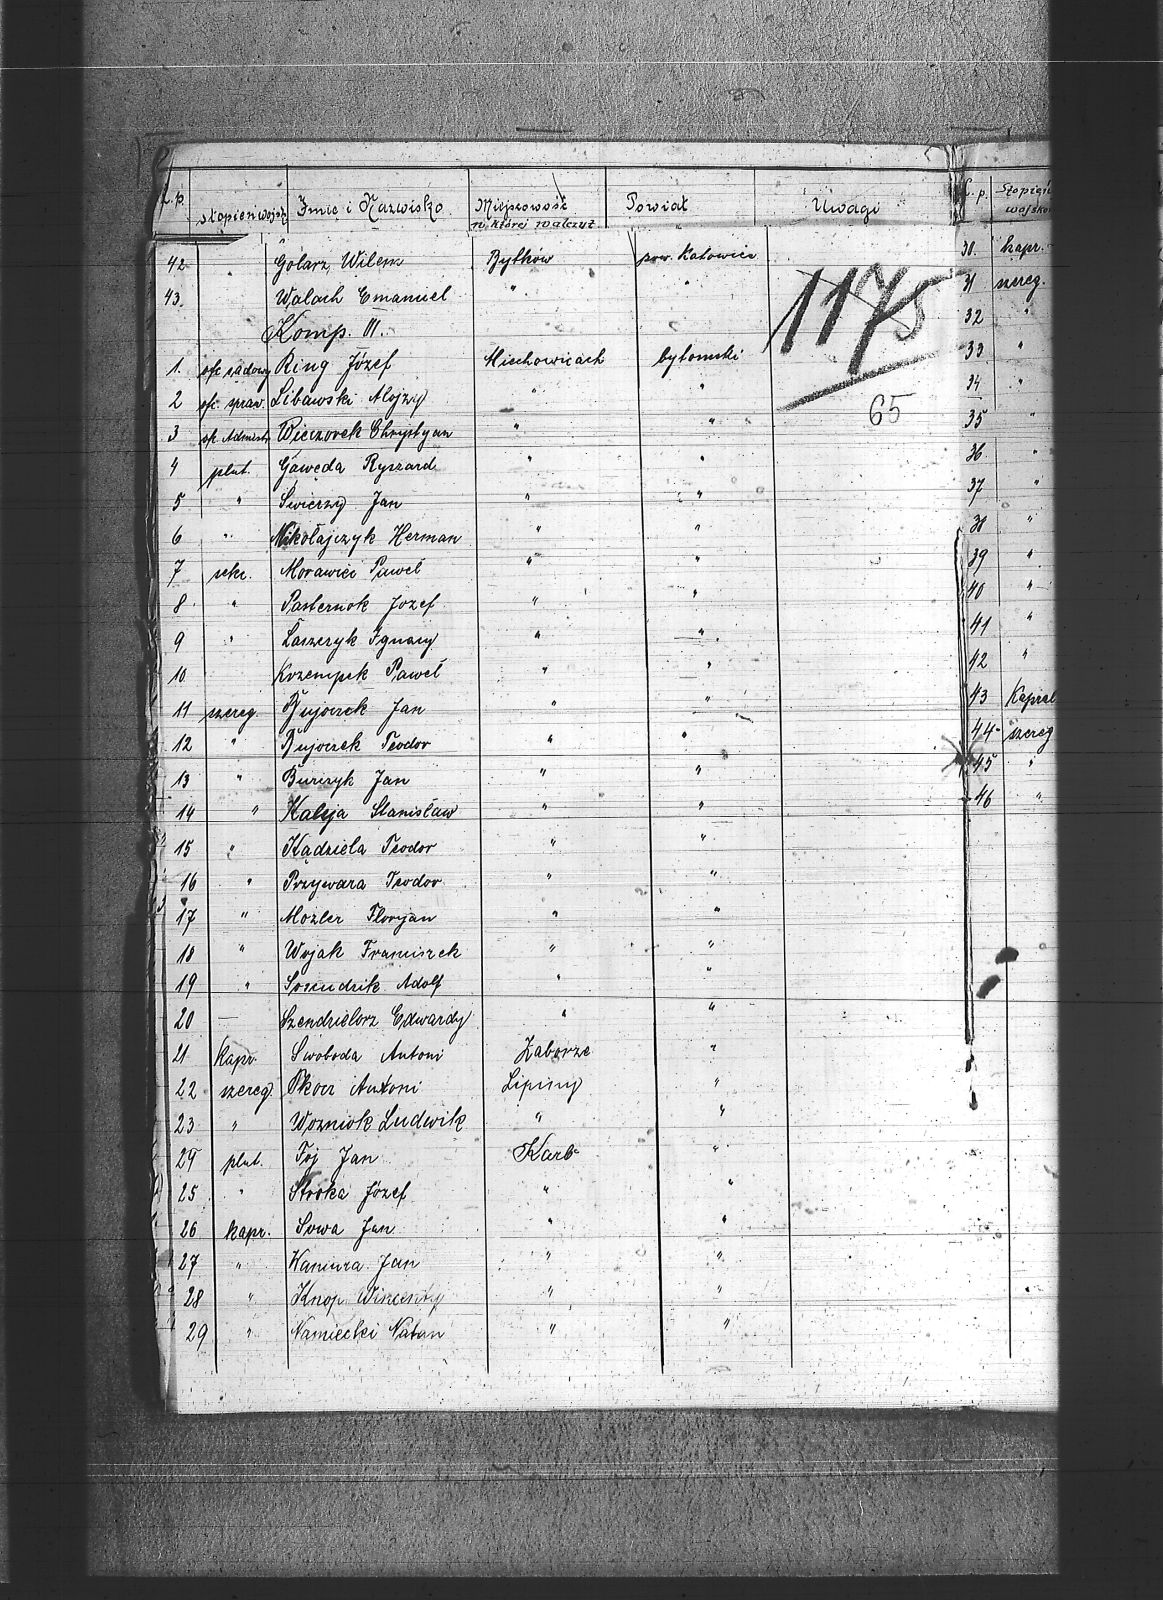 L.p. Stopień wojsk. Imię i Nazwisko Miejscowość w której walczył Powiat Uwagi
42 " Golarz Wilem Bytków pow. Katowice
43. Walach Emanuel " "
Komp. III.
1175
65
1. ofc. sądowy Ring Józef Miechowicach bytomski
2 ofc. spraw. Libawski Alojzy " "
3 ofc. Administ. Wieczorek Chrystyan " "
4 plut. Gawęda Ryszard " "
5 " Swierzy Jan " "
6 " Nikołajczyk Herman " "
7 sekc. Morawiec Paweł " "
8 " Pasternok Józef " "
9 " Laszczyk Ignacy " "
10 Krzempek Paweł " "
11 szereg. Bujoczek Jan " "
12 " Bujoczek Teodor " "
13 " Burczyk Jan " "
14 " Kaluja Stanisław " "
15 " Kądziela Teodor " "
16 " Przywara Teodor " "
17 " Mozler Floryan " "
18 " Wojak Franciszek " "
19 " Adolf " "
20 Szendzielorz Edward " "
21 kapr. Swoboda Antoni Zaborze "
22 szereg. Skorz Antoni Lipiny "
23 " Wozniok Ludwik " "
24 plut. Foj Jan Karb "
25 " Stroka Józef " "
26 kapr. Sowa Jan " "
27 " Kaniura Jan " "
28 " Knop Wincenty " "
29 " Namiecki Natan " "
L. p. Stopień wojsko
30. kapr.
31 szereg.
32 "
33 "
34 "
35 "
36 "
37 "
38 "
39 "
40 "
41 "
42 "
43 Kapral
44 szereg
45 "
46 "